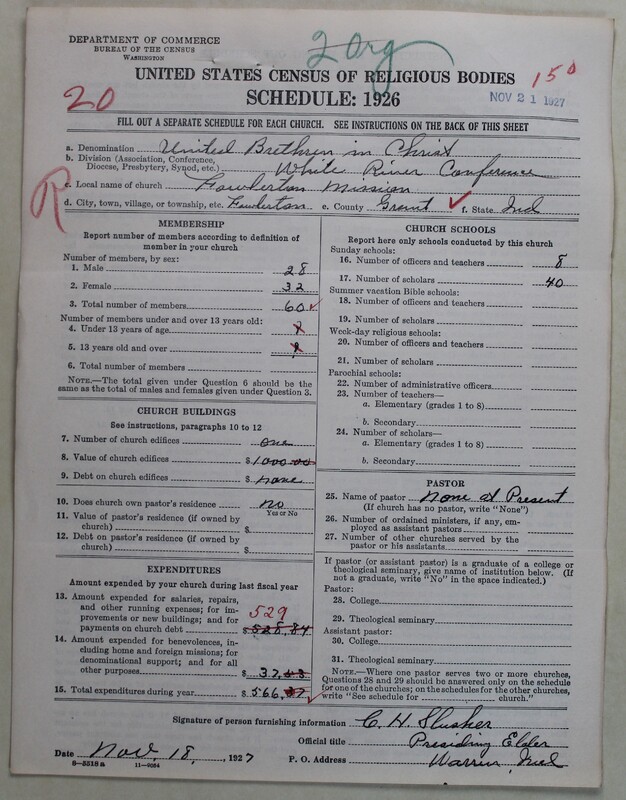 DEPARTMENT OF COMMERCE
BUREAU OF THE CENSUS
WASHINGTON
2 org
UNITED STATES CENSUS OF RELIGIOUS BODIES
150
20
SCHEDULE: 1926
NOV 21 1927
FILL OUT A SEPARATE SCHEDULE FOR EACH CHURCH. SEE INSTRUCTIONS ON THE BACK OF THIS SHEET
a. Denomination United Brethren in Christ
b. Division (Association, Conference, Diocese, Presbytery, Synod, etc.) White River Conference
R
c. Local name of church Fowlerton Mission
d. City, town, village, or township, etc. Fowlerton e. County Grant ✓ f. State Ind
MEMBERSHIP
Report number of members according to definition of
member in your church
Number of members, by sex:
1. Male 28
2. Female 32
3. Total number of members. 60 ✓
Number of members under and over 13 years old:
4. Under 13 years of age
5. 13 years old and over
6. Total number of members
NOTE.—The total given under Question 6 should be the
same as the total of males and females given under Question 3.
CHURCH BUILDINGS
See instructions, paragraphs 10 to 12
7. Number of church edifices one
8. Value of church edifices $ 1000.00
9. Debt on church edifices $ none
10. Does church own pastor's residence no
Yes or No
11. Value of pastor's residence (if owned by
church) $
12. Debt on pastor's residence (if owned by
church) $
EXPENDITURES
Amount expended by your church during last fiscal year
13. Amount expended for salaries, repairs,
and other running expenses; for im-
provements or new buildings; and for
payments on church debt $ 528.84
529
14. Amount expended for benevolences, in-
cluding home and foreign missions; for
denominational support; and for all
other purposes $ 37.
15. Total expenditures during year $ 566. ✓
CHURCH SCHOOLS
Report here only schools conducted by this church
Sunday schools:
16. Number of officers and teachers 8
17. Number of scholars 40
Summer vacation Bible schools:
18. Number of officers and teachers
19. Number of scholars
Week-day religious schools:
20. Number of officers and teachers
21. Number of scholars
Parochial schools:
22. Number of administrative officers
23. Number of teachers—
a. Elementary (grades 1 to 8)
b. Secondary
24. Number of scholars—
a. Elementary (grades 1 to 8)
b. Secondary
PASTOR
25. Name of pastor None at Present
(If church has no pastor, write "None")
26. Number of ordained ministers, if any, em-
ployed as assistant pastors
27. Number of other churches served by the
pastor or his assistants
If pastor (or assistant pastor) is a graduate of a college or
theological seminary, give name of institution below. (If
not a graduate, write "No" in the space indicated.)
Pastor:
28. College
29. Theological seminary
Assistant pastor:
30. College
31. Theological seminary
NOTE.—Where one pastor serves two or more churches,
Questions 28 and 29 should be answered only on the schedule
for one of the churches; on the schedules for the other churches,
write "See schedule for church."
Signature of person furnishing information C. H. Slusher
Official title Presiding Elder
Date Nov, 18, 1927 P. O. Address Warren, Ind
8—5518a 11—9084